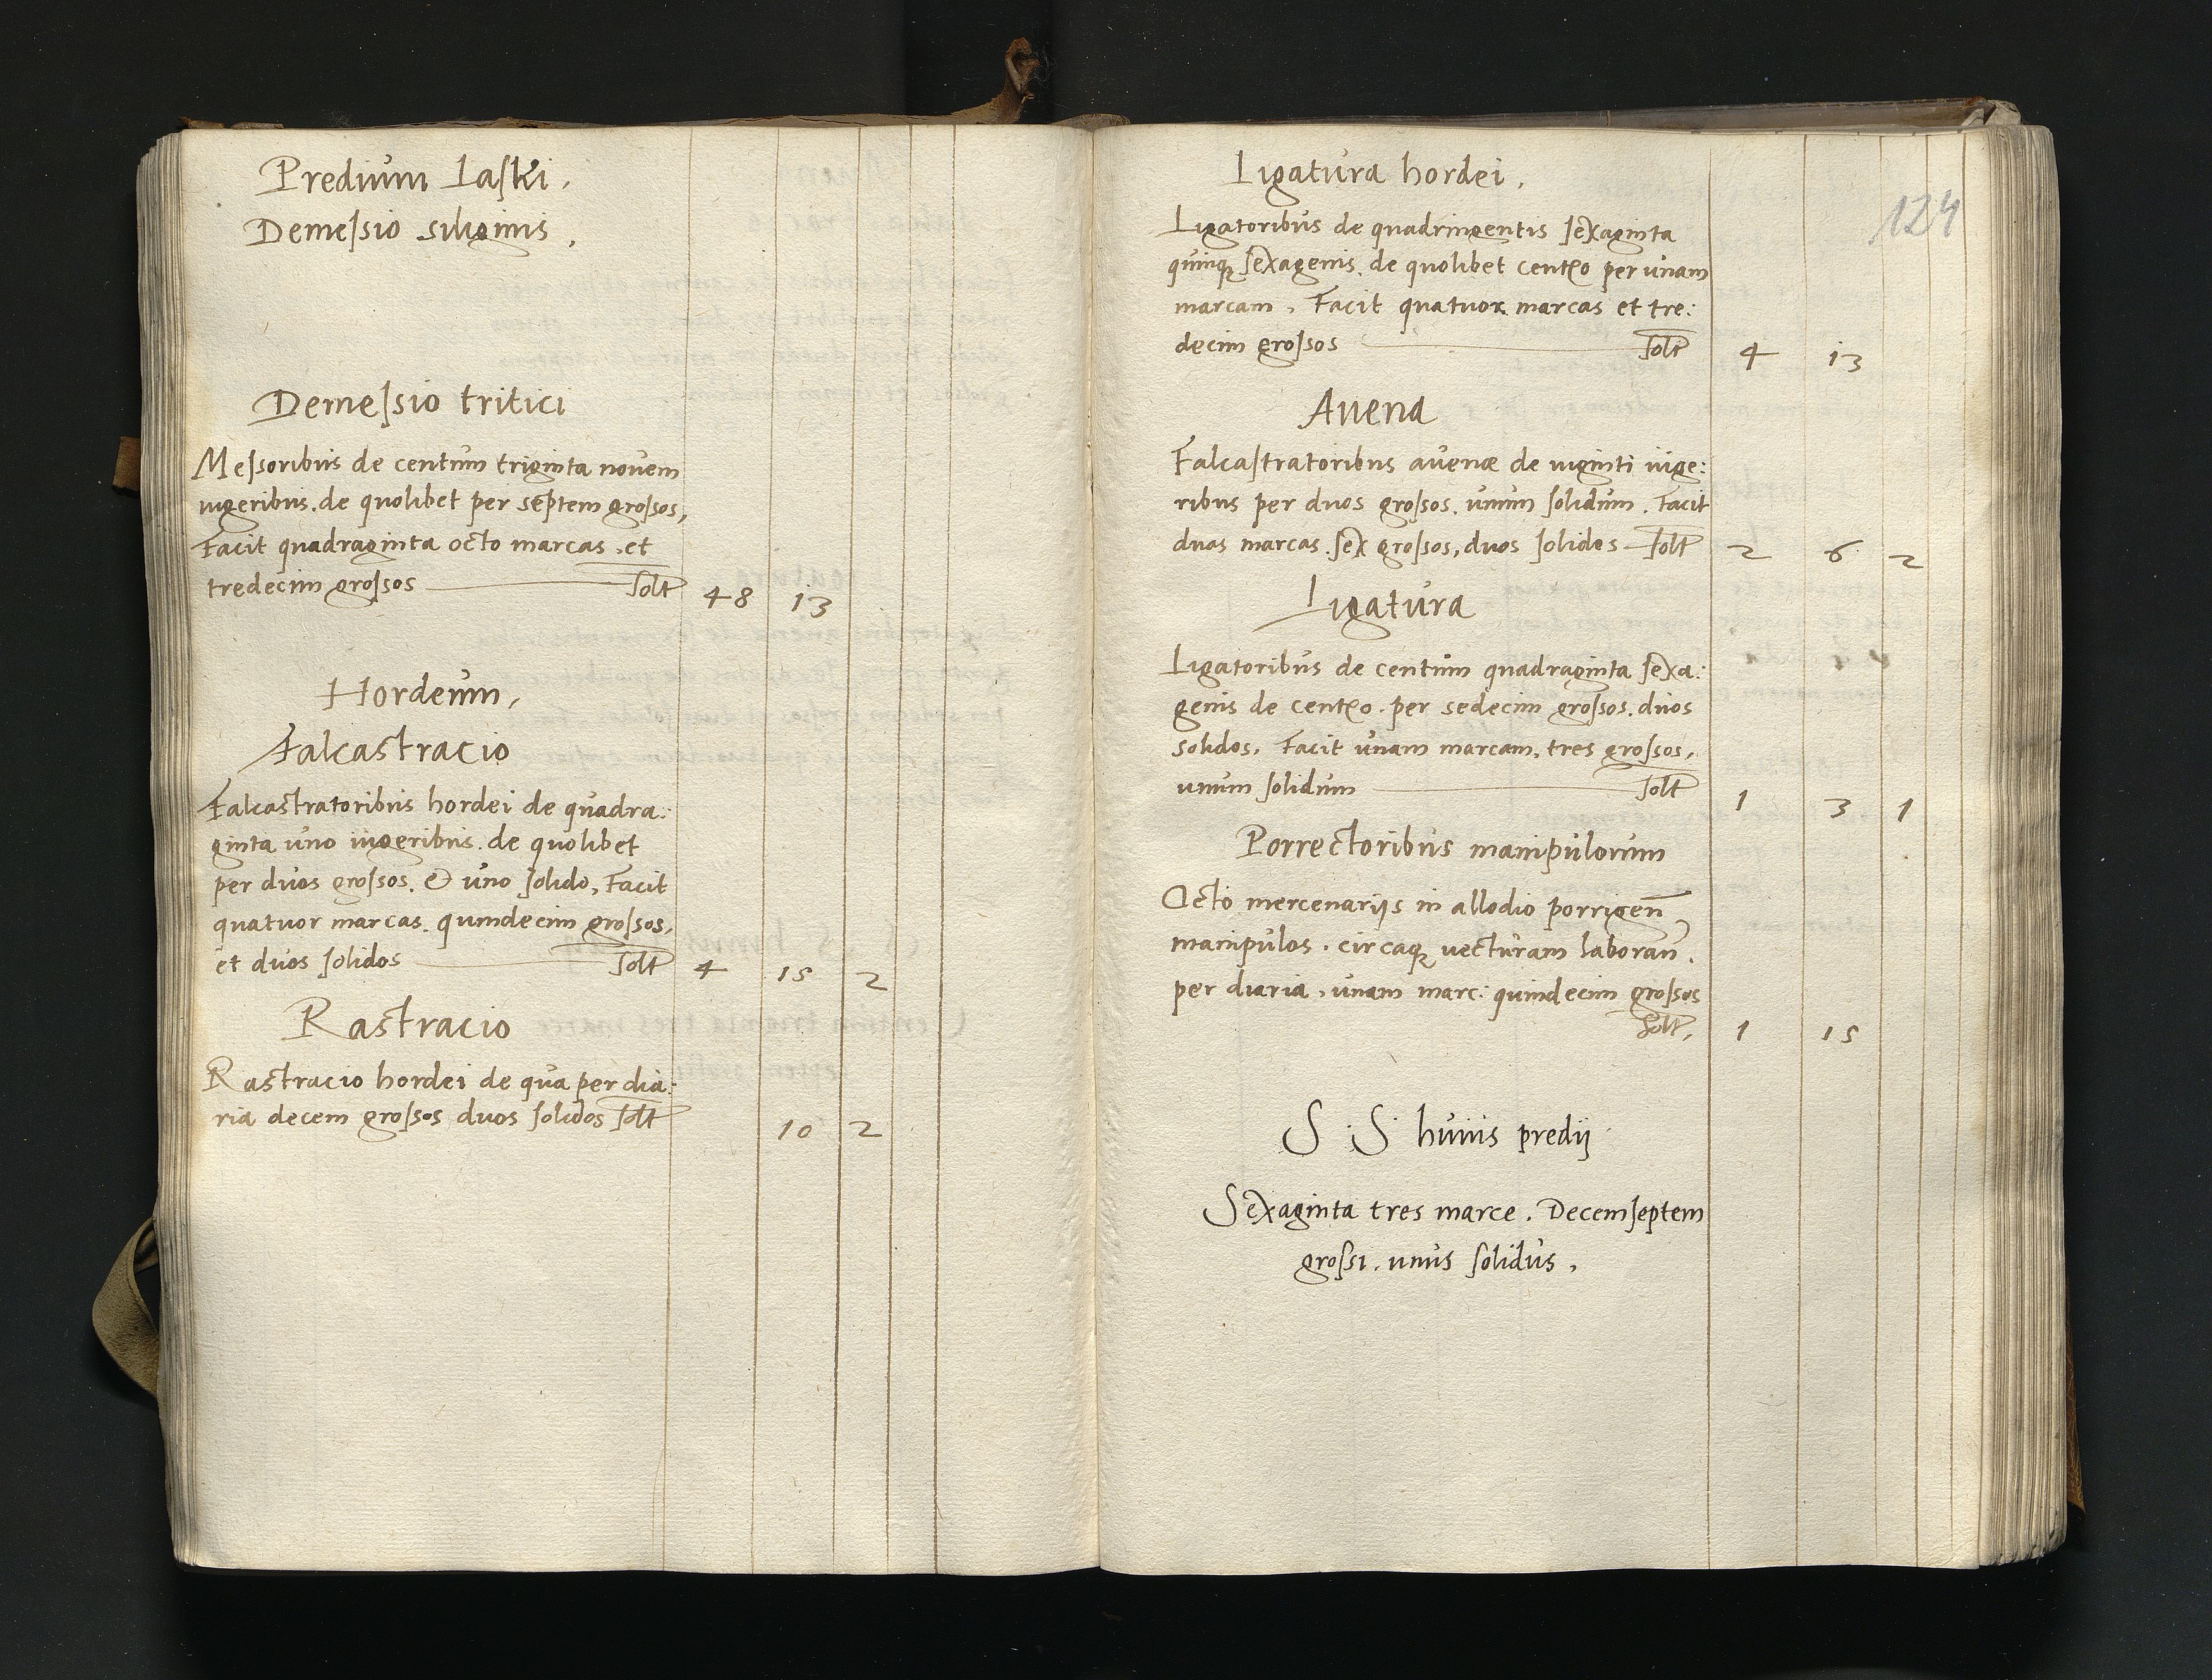 Predium Laski.
Demessio siliginis.
Demessio tritici
Messoribus de centum triginta novem
iugeribus. de quolibet per septem grossos,
Facit quadraginta octo marcas. et
tredecim grossos — solt 48 13
Hordeum,
Falcastracio
Falcastratoribus hordei de quadra:
ginta uno iugeribus. de quolibet
per duos grossos. & uno solido, Facit
quatuor marcas. quindecim grossos.
et duos solidos — solt 4 15 2
Rastracio
Rastracio hordei de qua per dia:
ria decem grossos duos solidos solt 10 2
124
Ligatura hordei.
Ligatoribus de quadringentis sexaginta
quinq; sexagenis. de quolibet centro per unam
marcam. Facit quatuor marcas et tre:
decim grossos — solt 4 13
Auena
Falcastratoribus auenæ de uiginti iuge:
ribus per duos grossos. unum solidum. Facit
duas marcas. sex grossos, duos solidos solt 2 6 2
Ligatura
Ligatoribus de centum quadraginta sexa:
genis de centro. per sedecim grossos. duos
solidos. Facit unam marcam, tres grossos,
unum solidum — solt 1 3 1
Porrectoribus manipulorum
Octo mercenarijs in allodio porrigen̄
manipulos. circaq; uecturam laboran̄.
per diaria. unam marc: quindecim grossos
solt. 1 15
S. S. huius predij
Sexaginta tres marce. Decemseptem
grossi. unus solidus.